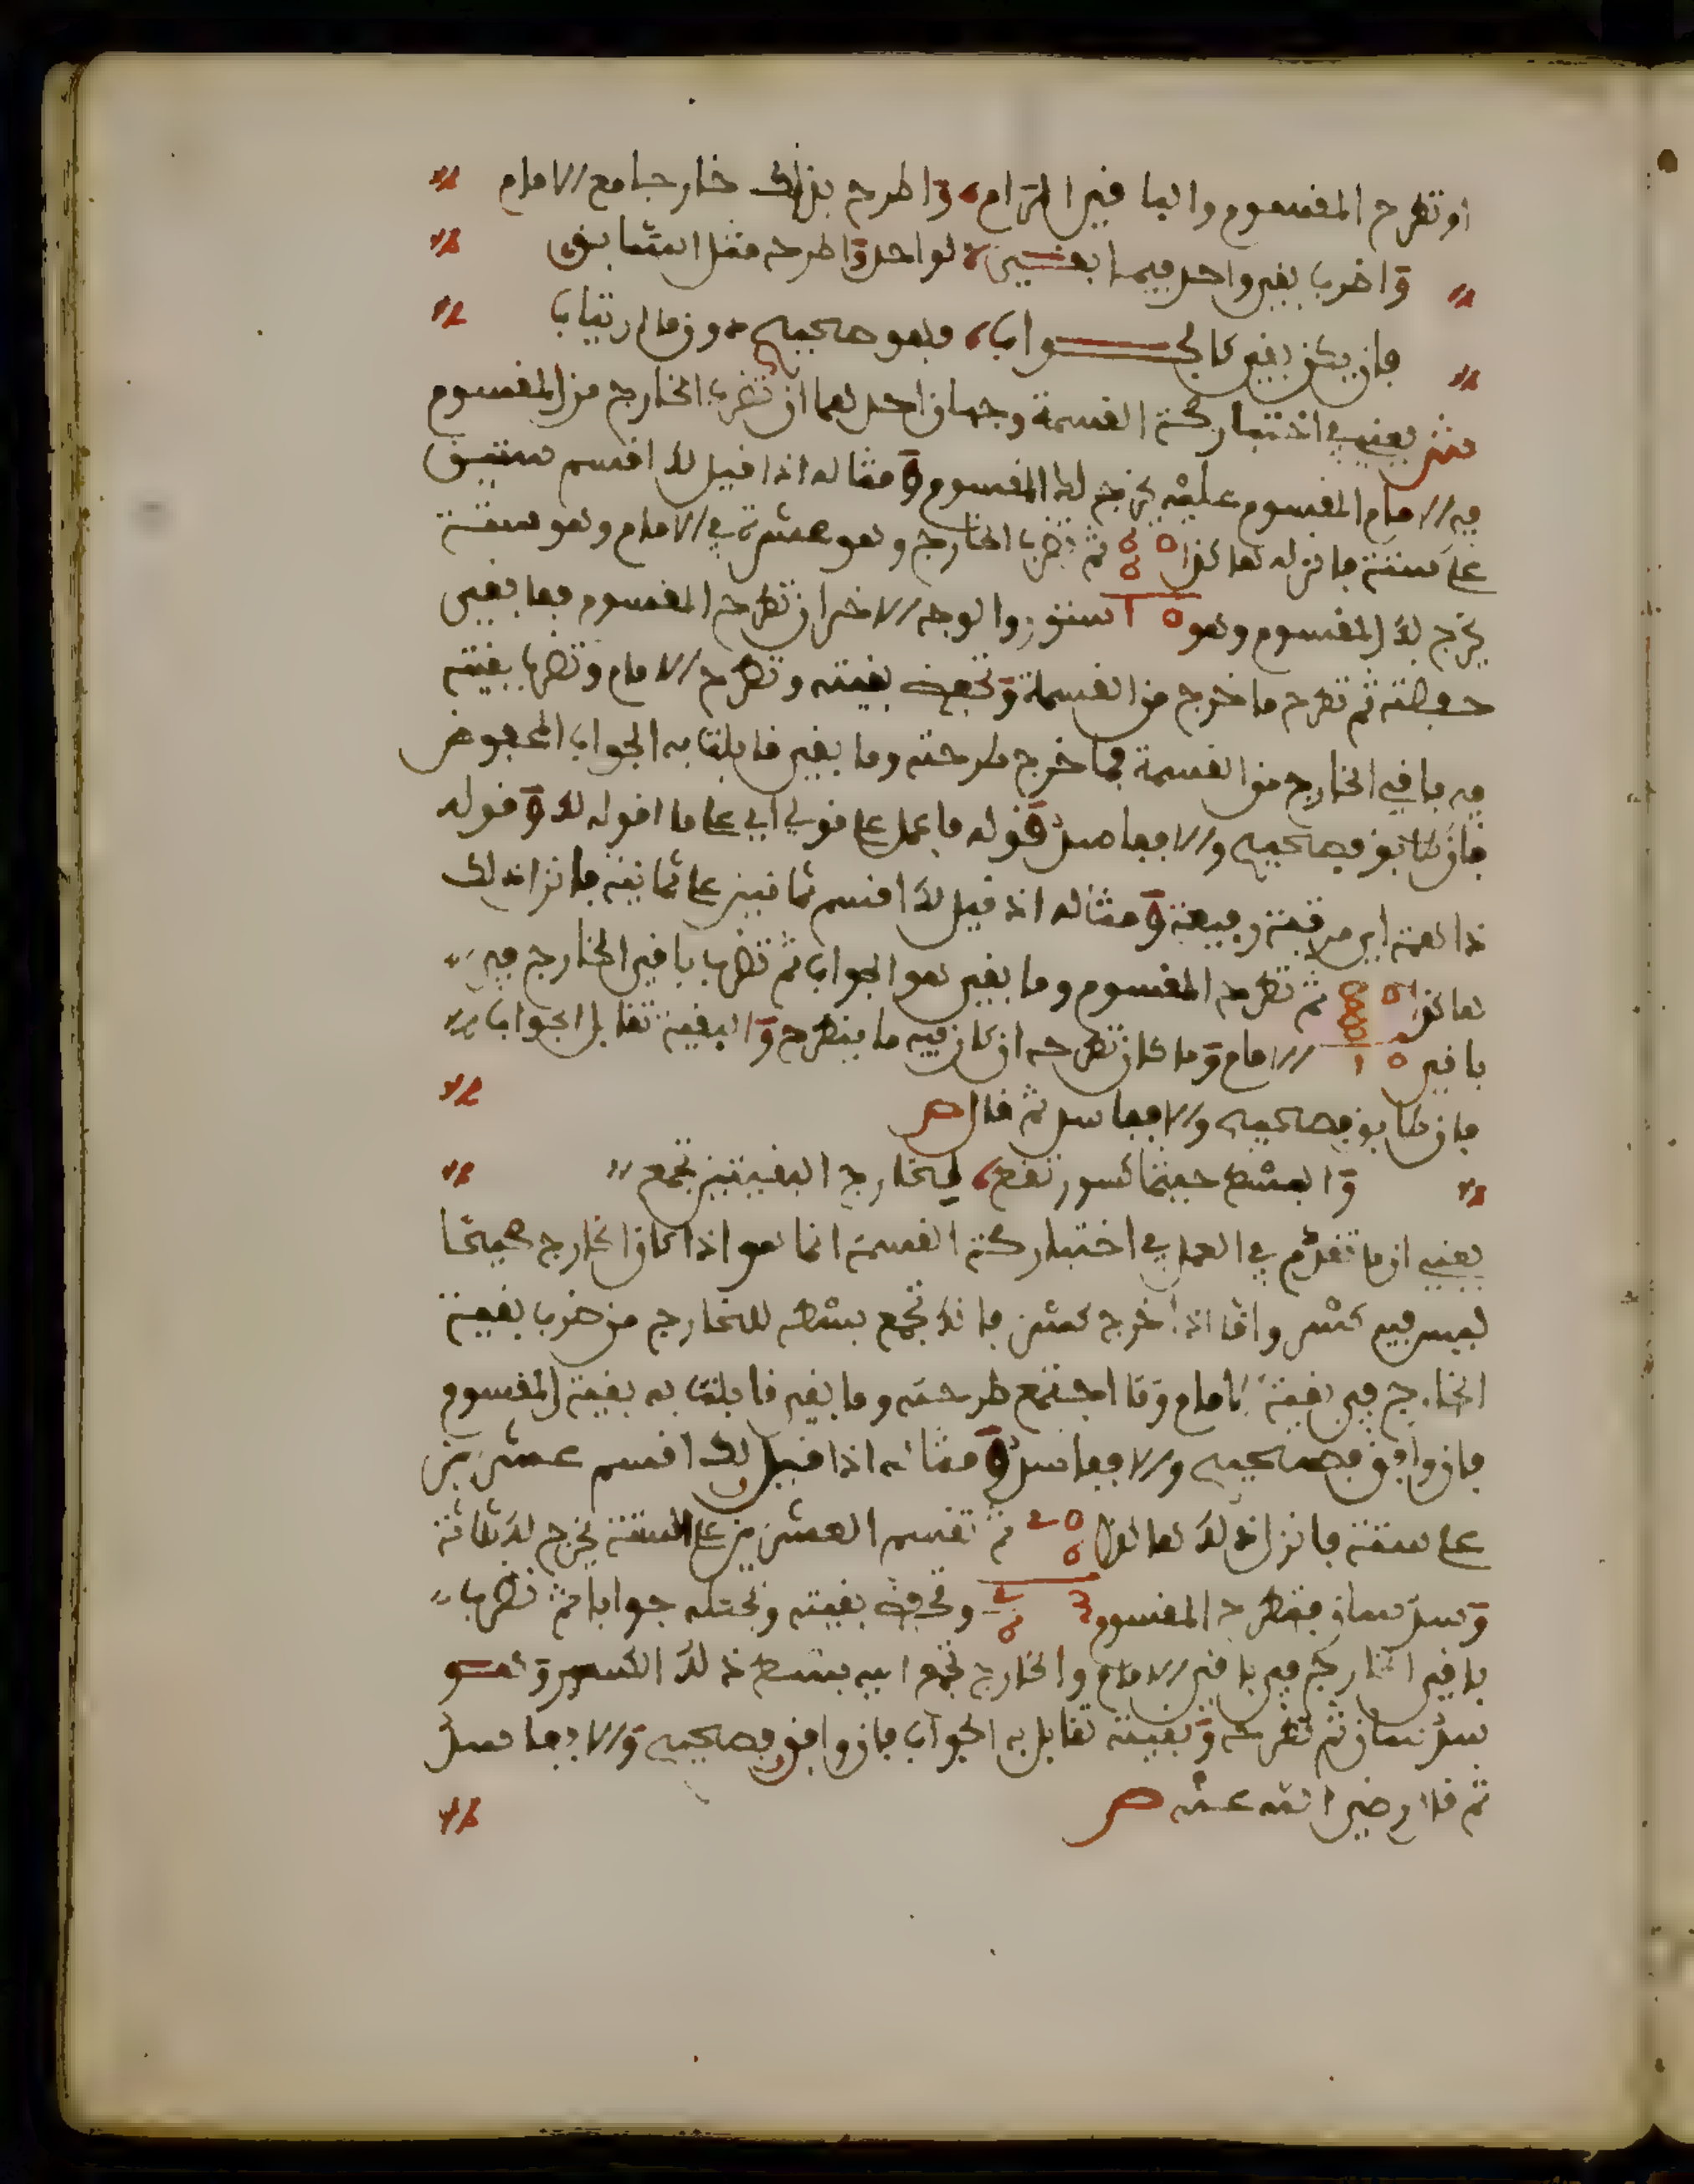 او تطرح المقسوم والباقي المرام، واطرح بذاك خارجا مع الامام
واضرب بقي واحد فيما بقي لواحد واطرحه مثل السابق
فإن يكن بقي كالجواب، فهو صحيح دون ما ارتياب
ش يعني في اختبار كة القسمة وجهان احدهما ان تضرب الخارج من المقسوم
في الامام المقسوم عليه يخرج لك المقسوم ومثاله اذا قيل لك اقسم ستين
على ستة فانزله هاكذا ٥ 6 ثم تضرب الخارج وهو عشرة في الامام وهو ستة
يخرج لك المقسوم وهو ٥ ١ ستون والوجه الاخر ان تطرح المقسوم فما بقي
حفظته ثم تطرح ما خرج من القسمة وتحفظ بقيته وتطرح الامام وتضرب بقيته
في باقي الخارج من القسمة فما خرج طرحته وما بقي قابلت به الجواب المحفوظ
فإن طابق فصحيح والا ففاسد قوله فاعمل على قولي اي على ما اقوله لك وقوله
ذا لعته اي مرقبة وبيعة ومثاله اذ قيل لك اقسم ثمانين على ثمانية فانزل ذلك
هاكذا ٥ 8 ثم تطرح المقسوم وما بقي هو الجواب ثم تضرب باقي الخارج في
باقي ٥ ١ الامام وما كان تطرحه ان كان فيه ما ينطرح والبقية تقابل الجواب
فان طابق فصحيح والا ففاسد ثم قال ص
والبسط حيثما كسور تقع، لخارج البقيتين تجمع
يعني ان ما تقدم في العمل في اختبار كة القسمة انما هو اذا كان الخارج صحيحا
ليس فيه كسر واما اذا خرج كسر فانك تجمع بسطه للخارج من ضرب بقية
الخارج في بقية الامام وما اجتمع طرحته وما بقي قابلت به بقية المقسوم
فان وافق فصحيح والا ففاسد ومثاله اذا قيل لك اقسم عشرين
على ستة فانزل ذلك هاكذا ٥ 2 6 ثم تقسم العشرين على الستة يخرج لك ثلاثة
وسدسان فتطرح المقسوم 3 2 6 وتحفظ بقيته وتجعله جوابا ثم تضرب
باقي الخارج في باقي الامام والخارج تجمع اليه بسط ذلك الكسر وهو
سدسان ثم تطرحه وبقيته تقابل به الجواب فان وافق فصحيح والا ففاسد
ثم قال رضي الله عنه ص